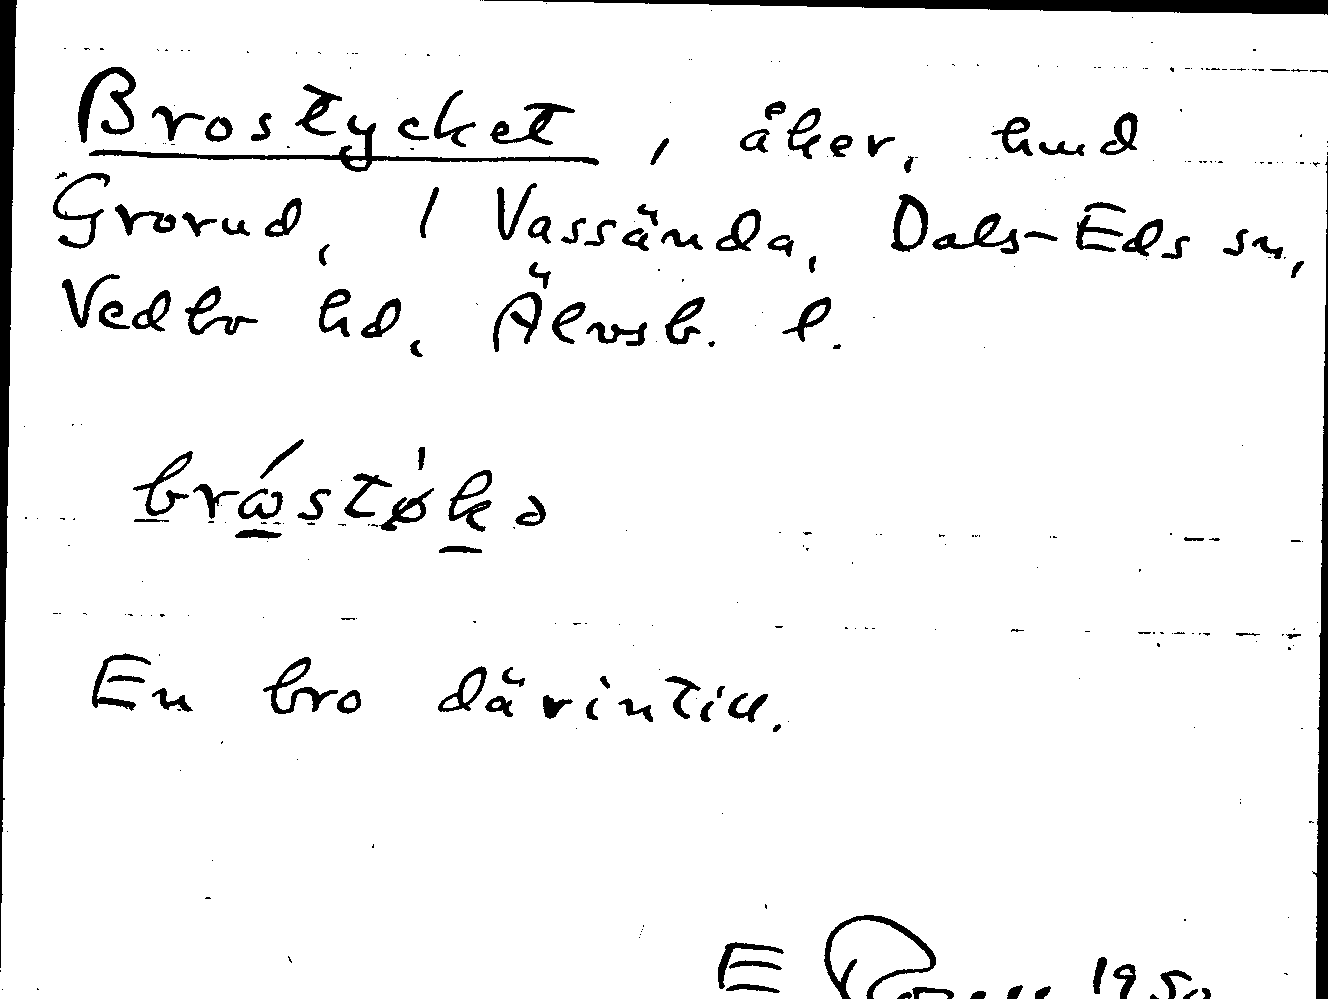 Brostycket, åker, hmd
Grorud, 1 Vassända, Dals-Eds sn,
Vedbo hd, Älvsb. l.
brώstø̍kə
En bro därintill.
E 1950